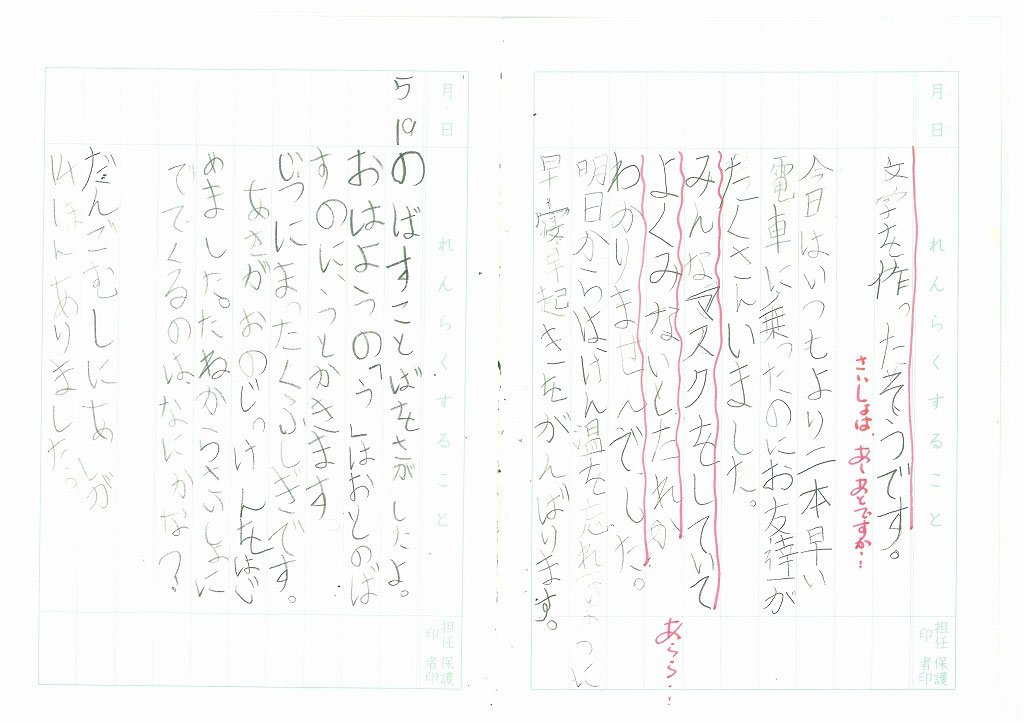 月日 れんらくすること
文字を作ったそうです。
さいしょは、あーあとですか‥
今日はいつもより二本早い
電車に乗ったのにお友達が
たくさんいました。
みんなマスクをしていて
よくみないとだれか
わかりませんでした。
あらら‥
明日からはけん温を忘れないように
早寝早起きをがんばります。
担任印 保護者印
月日 れんらくすること
5 19
のばすことばをさがしたよ。
おはようの「う」はおとのば
すのに、うとかきます
じつにまったくふしぎです。
あさがおのじっけんをはじ
めました。たねからさいしょに
でてくるのは、なにかな?
だんごむしにあしが
14ほんありました。
担任印 保護者印